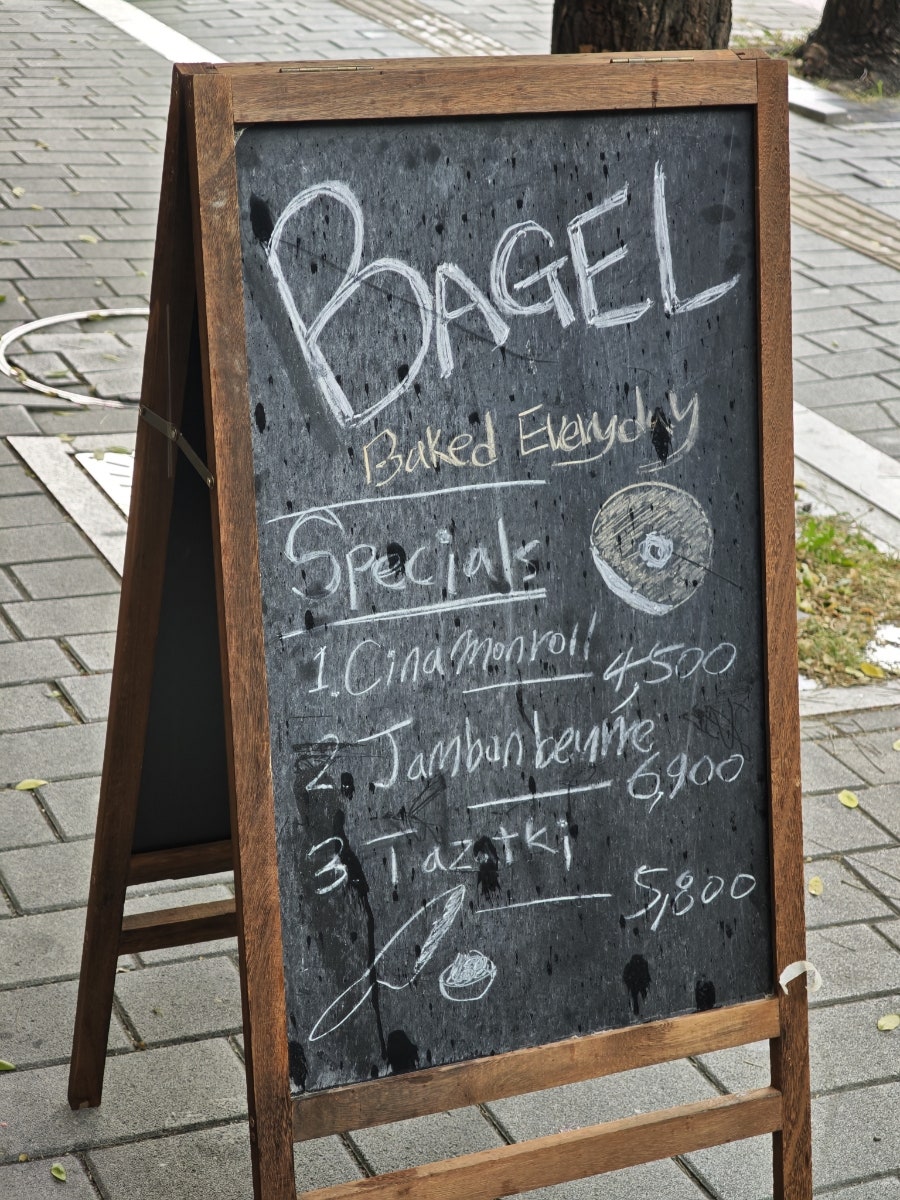 BAGEL
Baked Everyday
Specials
1. Cinamonroll 4,500
2 Jambonbeurre 6,900
3 Tazatki 5,800